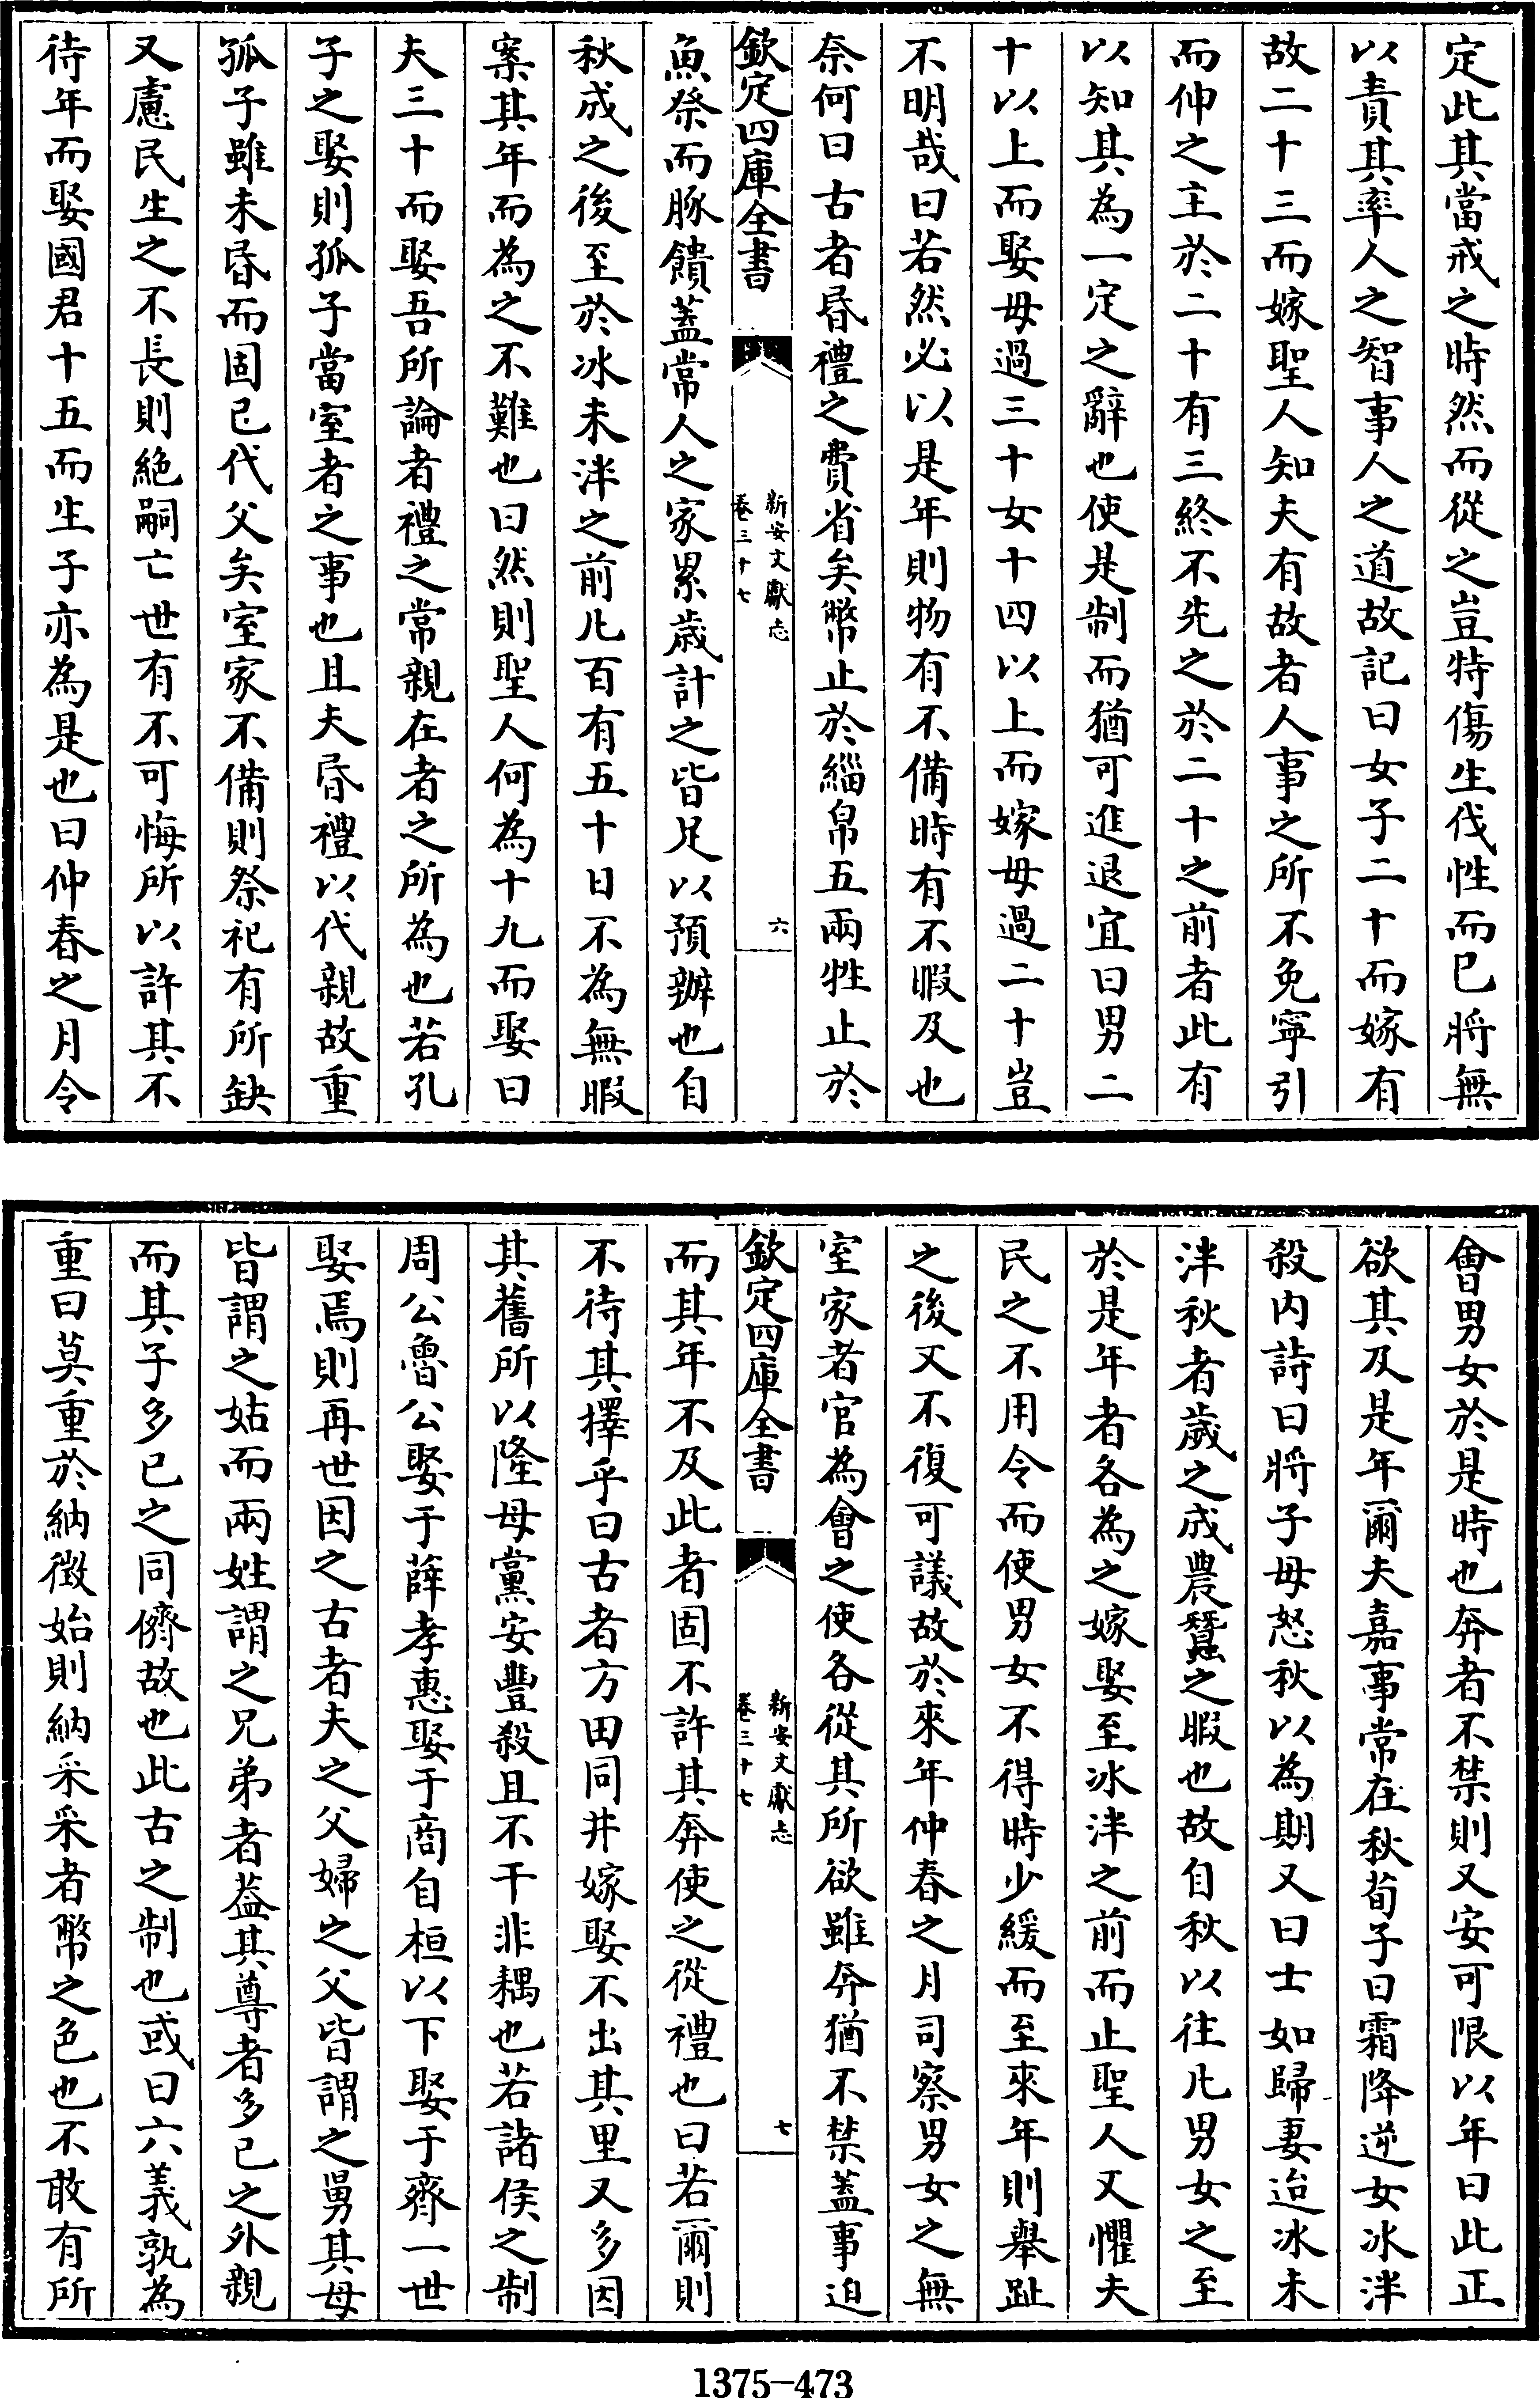 定此其當戒之時然而從之豈特傷生伐性而已將無
以責其率人之智事人之道故記曰女子二十而嫁有
故二十三而嫁聖人知夫有故者人事之所不免寧引
而伸之主於二十有三終不先之於二十之前者此有
以知其為一定之辭也使是制而猶可進退宜曰男二
十以上而娶毋過三十女十四以上而嫁毋過二十豈
不明哉曰若然必以是年則物有不備時有不暇及也
奈何曰古者昏禮之費省矣幣止於緇帛五兩牲止於
欽定四庫全書
新安文獻志
卷三十七
六
魚祭而豚饋蓋常人之家累歲計之皆足以預辦也自
秋成之後至於冰未泮之前凡百有五十日不為無暇
案其年而為之不難也曰然則聖人何為十九而娶曰
夫三十而娶吾所論者禮之常親在者之所為也若孔
子之娶則孤子當室者之事也且夫昏禮以代親故重
孤子雖未昏而固已代父矣室家不備則祭祀有所缺
又慮民生之不長則絶嗣亡世有不可悔所以許其不
待年而娶國君十五而生子亦為是也曰仲春之月令
會男女於是時也奔者不禁則又安可限以年曰此正
欲其及是年爾夫嘉事常在秋荀子曰霜降逆女冰泮
殺内詩曰將子毋怒秋以為期又曰士如歸妻迨冰未
泮秋者歲之成農蠶之暇也故自秋以往凡男女之至
於是年者各為之嫁娶至冰泮之前而止聖人又懼夫
民之不用令而使男女不得時少緩而至來年則舉趾
之後又不復可議故於來年仲春之月司察男女之無
室家者官為會之使各從其所欲雖奔猶不禁蓋事迫
欽定四庫全書
新安文獻志
卷三十七
七
而其年不及此者固不許其奔使之從禮也曰若爾則
不待其擇乎曰古者方田同井嫁娶不出其里又多因
其舊所以隆母黨安豐殺且不干非耦也若諸侯之制
周公魯公娶于薛孝惠娶于商自桓以下娶于齊一世
娶焉則再世因之古者夫之父婦之父皆謂之舅其母
皆謂之姑而兩姓謂之兄弟者葢其尊者多已之外親
而其子多已之同儕故也此古之制也或曰六義孰為
重曰莫重於納徵始則納采采者幣之色也不敢有所
1375-473